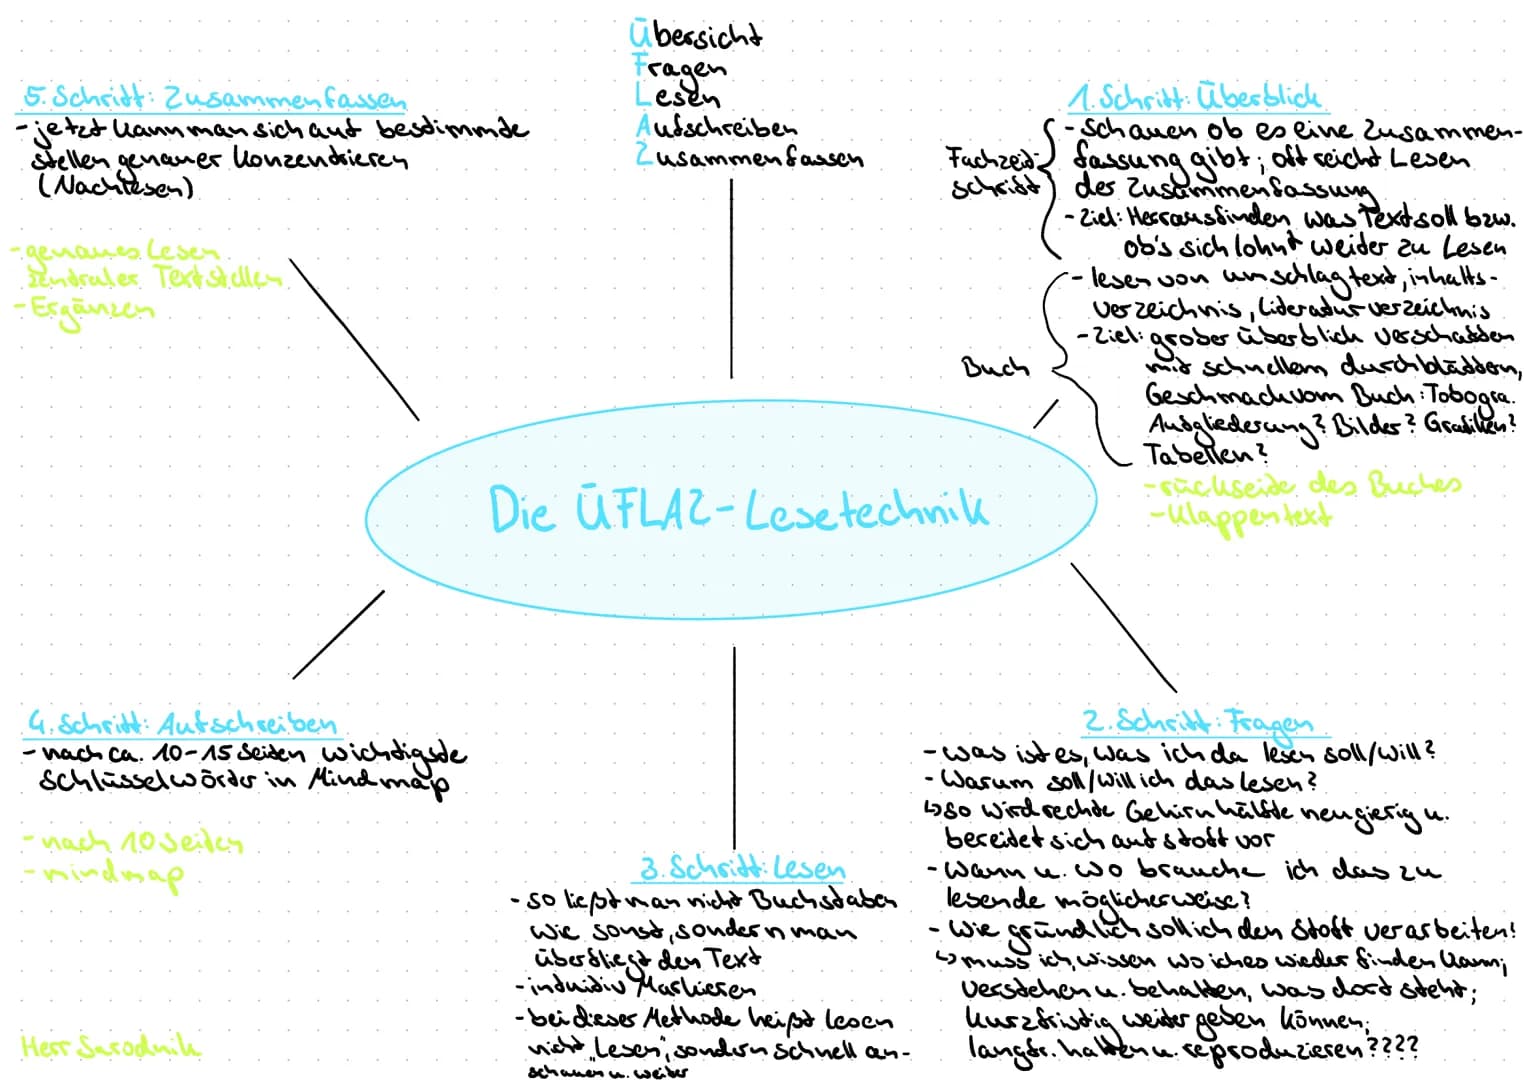 Übersicht
Fragen
Lesen
Aufschreiben
Zusammenfassen
1. Schritt: Überblick
Fachzeit-
schrift
- schauen ob es eine Zusammen-
fassung gibt; oft reicht Lesen
der Zusammenfassung
- Ziel: Herrausfinden was Text soll bzw.
ob's sich lohnt weiter zu Lesen
Buch
- lesen von umschlagtext, inhalts-
verzeichnis, Literaturverzeichnis
- Ziel: grober überblick verschaffen
mit schnellem durchblättern,
Geschmack vom Buch: Tobogra.
Aufgliederung? Bilder? Grafiken?
Tabellen?
- rückseite des Buches
- Klappentext
Die ÜFLAZ-Lesetechnik
2. Schritt: Fragen
- was ist es, was ich da lesen soll/will?
- Warum soll/will ich das lesen?
↳ so wird rechte Gehirnhälfte neugierig u.
bereitet sich auf stoff vor
- Wann u. wo brauche ich das zu
lesende möglicherweise?
- Wie gründlich soll ich den Stoff verarbeiten!
↳ muss ich, wissen wo iches wieder finden kann;
verstehen u. behalten, was dort steht;
kurzfristig weiter geben können;
langfr. halten u. reproduzieren????
3. Schritt: Lesen
- so ließt man nicht Buchstaben
wie sonst, sondern man
überfliegt den Text
- intuitiv Markieren
- bei dieser Methode heißt lesen
nicht „Lesen", sondern schnell an-
schauen u. weiter
4. Schritt: Aufschreiben
- nach ca. 10-15 Seiten wichtigste
Schlüsselwörter in Mindmap
- nach 10 Seiten
- mindmap
Herr Sarodnik
5. Schritt: Zusammenfassen
- jetzt kann man sich auf bestimmte
stellen genauer konzentrieren
(Nachlesen)
- genaues Lesen
zentraler Textstellen
- Ergänzen